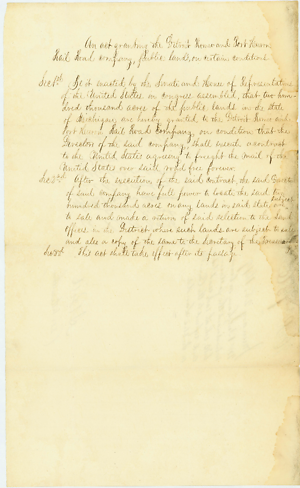 An act granting the Detroit Romeo and Port Huron
Rail Road Company, public land, on certain conditions
Sec 1st Be it enacted by the Senate and House of Representatives
of the United States in congress assembled, that two hun-
dred thousand acres of the public lands in the State
of Michigan, are hereby granted to the Detroit Romeo and
Port Huron Rail Road Company, on condition that the
Directors of the said company shall execute a contract
to the United States agreeing to freight the mail of the
United States over said road free forever.
Sec 2nd After the execution of the said contract, the said
of said company have full power to locate the said two
hundred thousand acres on any lands in said State subject
to sale and made a return of said selection to the Land
offices in the District, where such lands are subject to sale
and also a copy of the same to the Secretary of the
Sec 3d This act shall take effect after its passage.